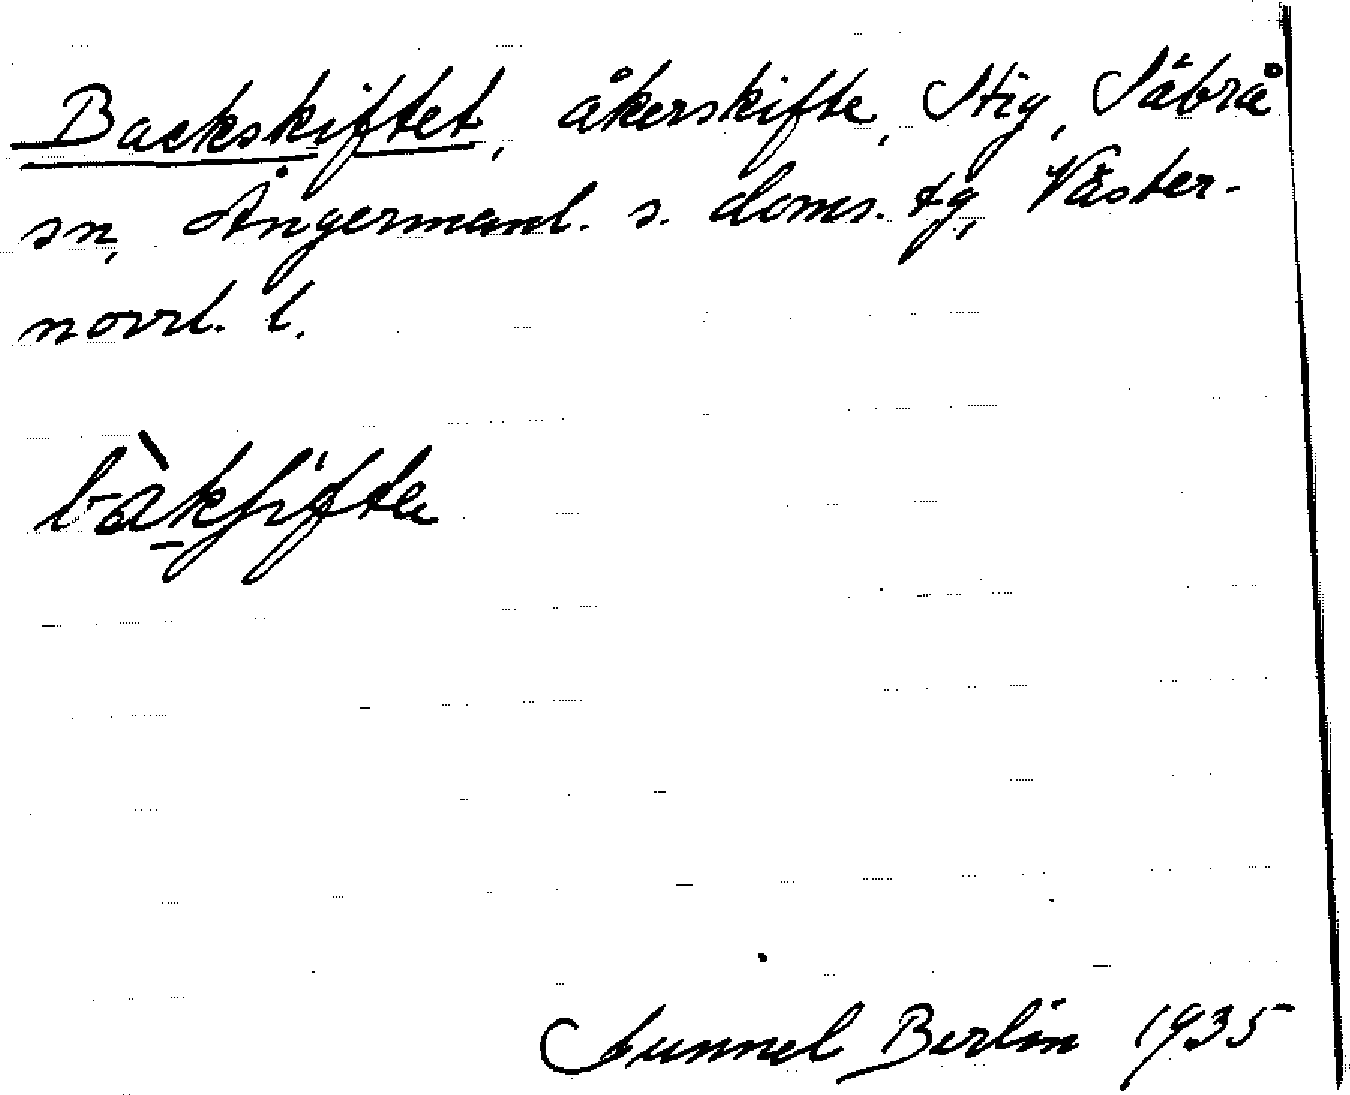 Backskiftet, åkerskifte, Stig, Säbrå
sn, Ångermanl. s. doms. tg, Väster-
norrl. l.
bàkʃifta
Gunnel Berlin 1935